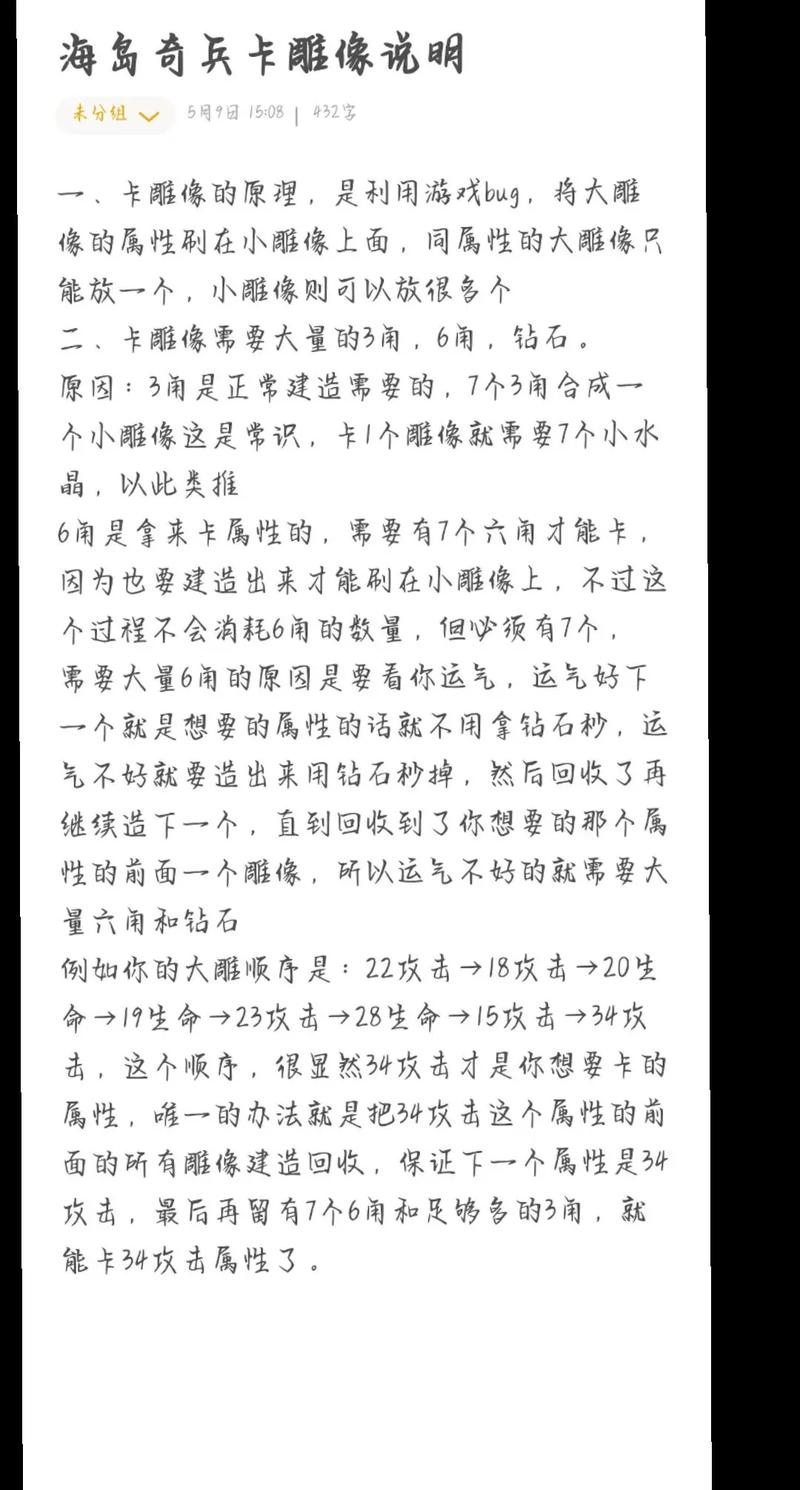 海岛奇兵卡雕像说明
未分组 5月9日 15:08 | 432字
一、卡雕像的原理，是利用游戏bug，将大雕
像的属性刷在小雕像上面，同属性的大雕像只
能放一个，小雕像则可以放很多个
二、卡雕像需要大量的3角，6角，钻石。
原因：3角是正常建造需要的，7个3角合成一
个小雕像这是常识，卡1个雕像就需要7个小水
晶，以此类推
6角是拿来卡属性的，需要有7个六角才能卡，
因为也要建造出来才能刷在小雕像上，不过这
个过程不会消耗6角的数量，但必须有7个，
需要大量6角的原因是要看你运气，运气好下
一个就是想要的属性的话就不用拿钻石秒，运
气不好就要造出来用钻石秒掉，然后回收了再
继续造下一个，直到回收到了你想要的那个属
性的前面一个雕像，所以运气不好的就需要大
量六角和钻石
例如你的大雕顺序是：22攻击→18攻击→20生
命→19生命→23攻击→28生命→15攻击→34攻
击，这个顺序，很显然34攻击才是你想要卡的
属性，唯一的办法就是把34攻击这个属性的前
面的所有雕像建造回收，保证下一个属性是34
攻击，最后再留有7个6角和足够多的3角，就
能卡34攻击属性了。